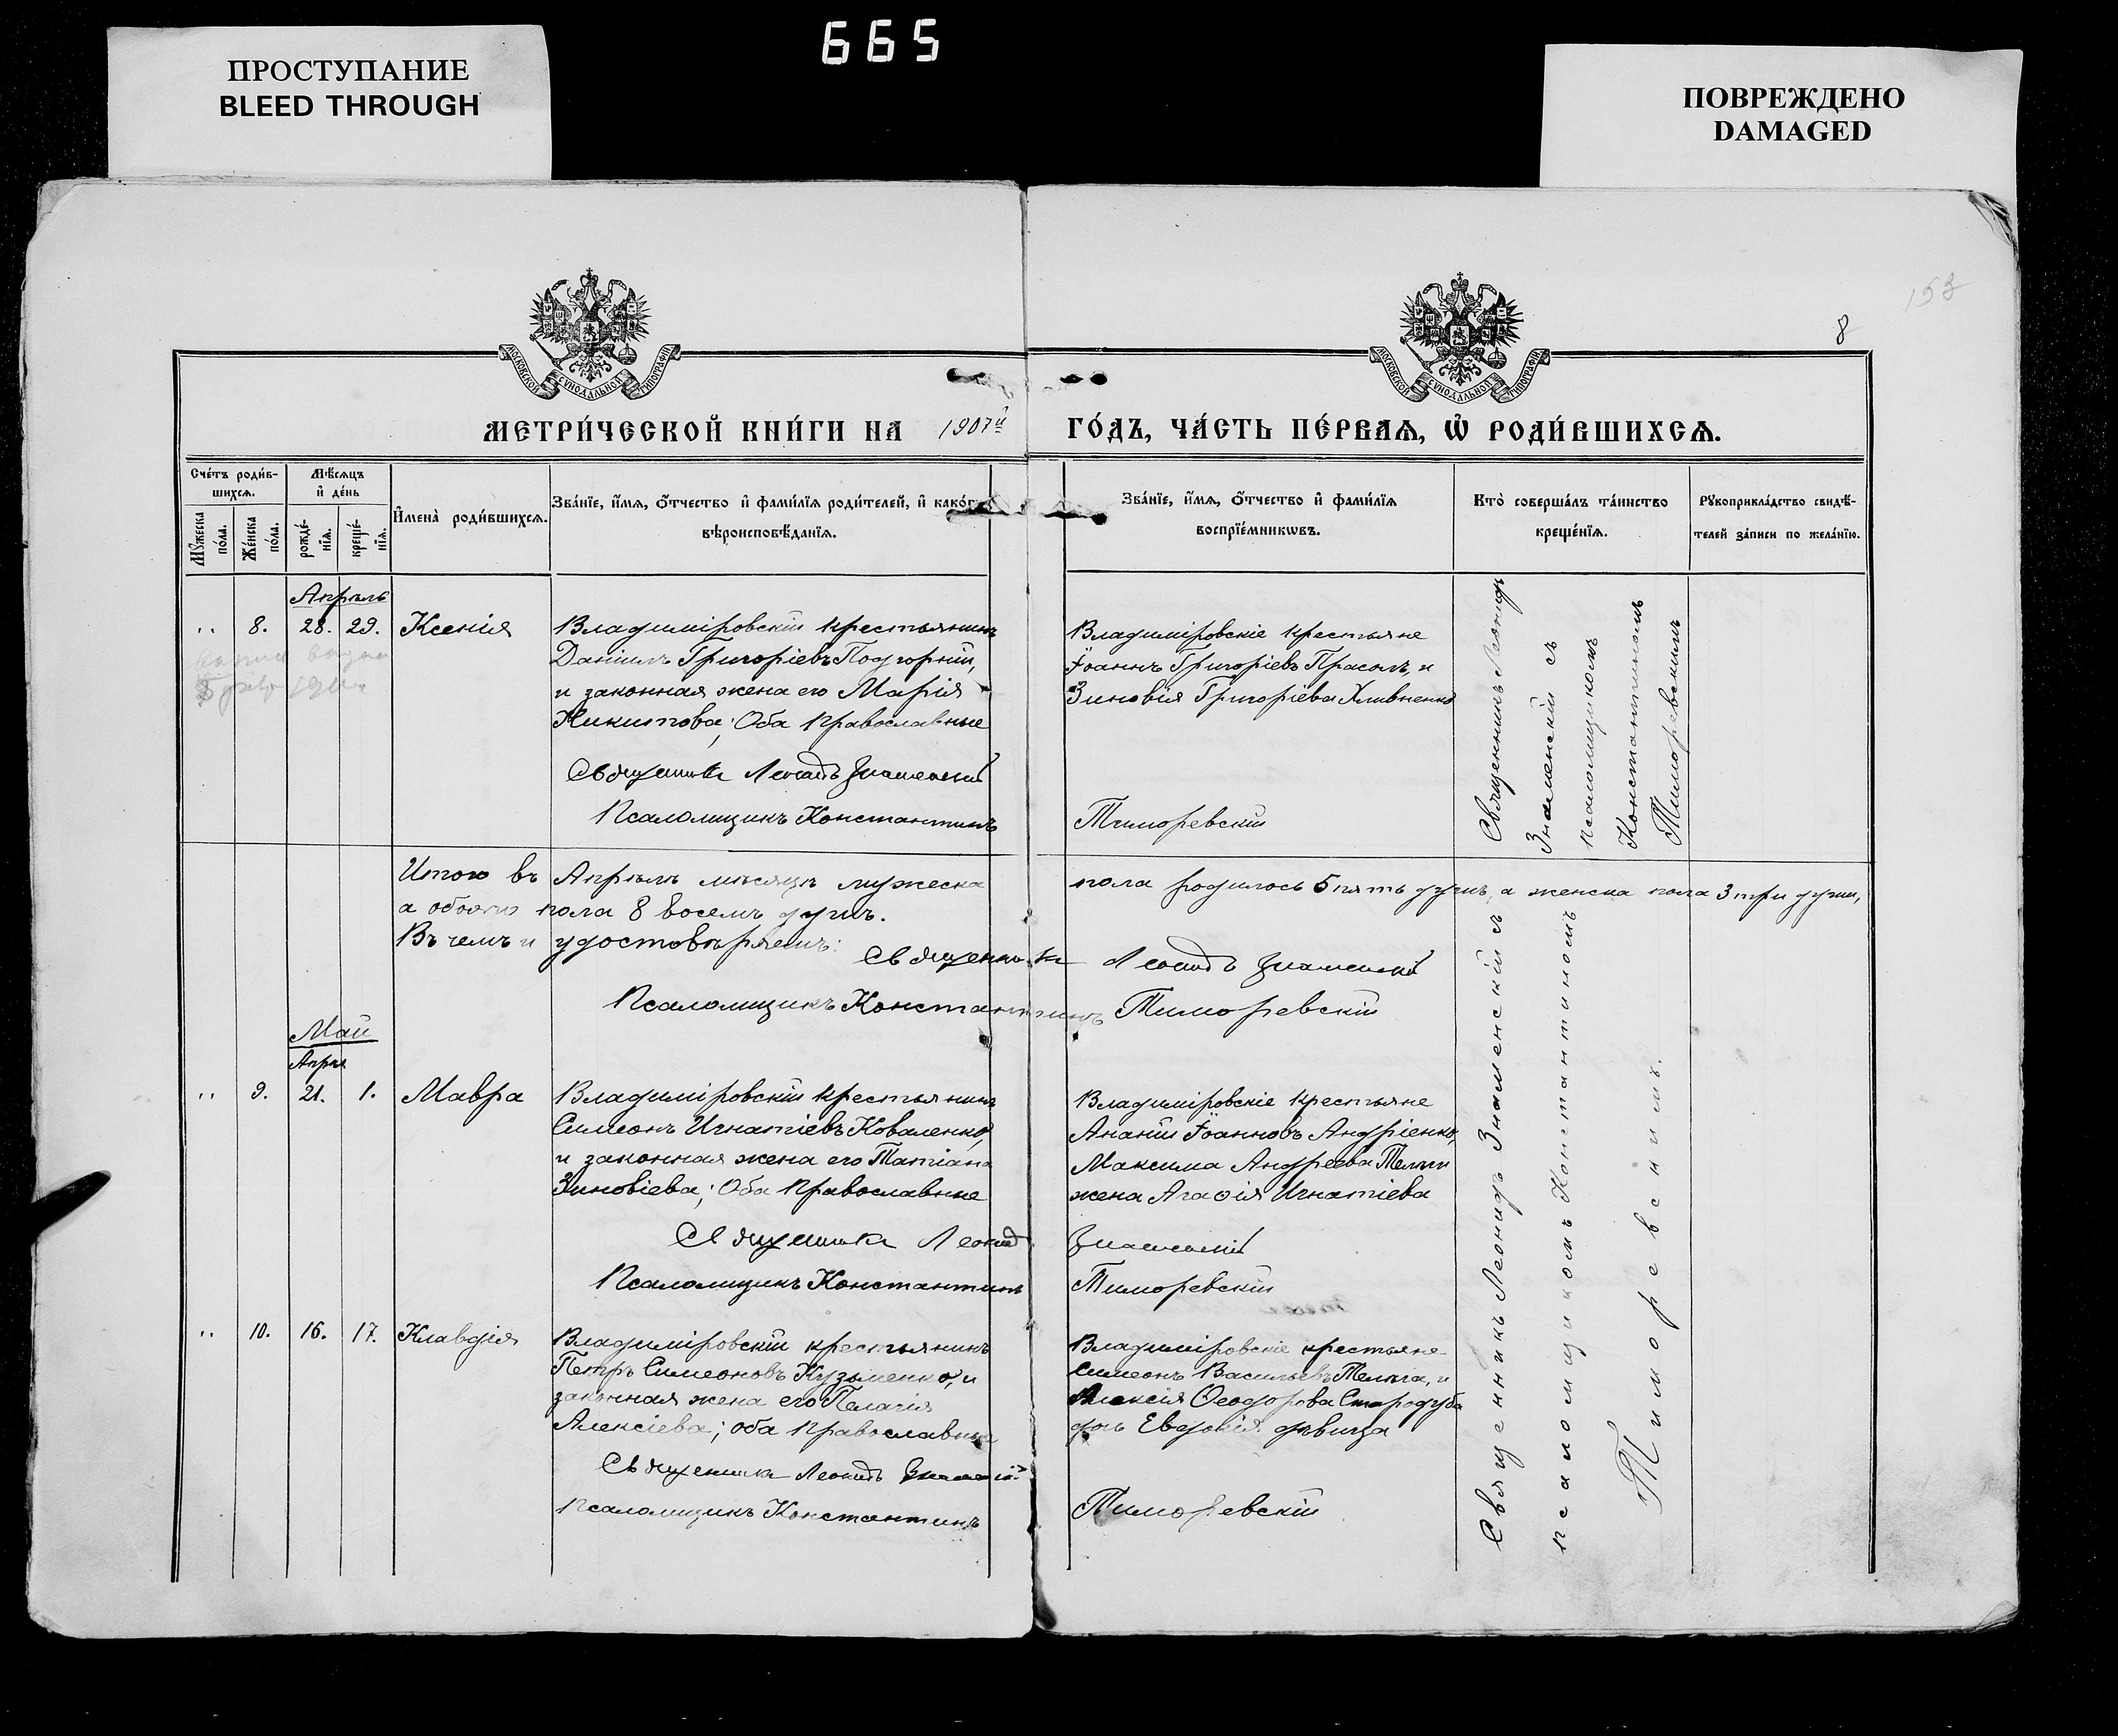 665
ПРОСТУПАНИЕ
BLEED THROUGH
ПОВРЕЖДЕНО
DAMAGED
153
8
МОСКОВСКОЙ СУНОДАЛЬНОЙ ТИПОГРАФІИ
МОСКОВСКОЙ СУНОДАЛЬНОЙ ТИПОГРАФІИ
МЕТРИ́ЧЕСКОЙ КНИ́ГИ НА 1907й ГО́ДЪ, ЧА́СТЬ ПЕ́РВАѦ, Ѡ҆ РОДИ́ВШИХСѦ.
Сче́тъ роди́в-
шихсѧ.
Мѣ́сѧцъ
и҆ де́нь
Мꙋ́жеска по́ла.
Же́нска по́ла.
рожде́-
нїѧ.
креще́-
нїѧ.
И҆мена̀ роди́вшихсѧ.
Зва́нїе, и҆́мѧ, ѻ҆́тчество и҆ фами́лїѧ роди́телей, и҆ како́гѡ
вѣроисповѣ́данїѧ.
Зва́нїе, и҆́мѧ, ѻ҆́тчество и҆ фами́лїѧ
воспрїе́мникѡвъ.
Кто̀ соверша́лъ та́инство
креще́нїѧ.
Рꙋкоприкла́дство свидѣ́-
телей за́писи по жела́нїю.
Апрѣль
,, 8. 28. 29. Ксенія
Владиміровскій крестьянинъ
Даніилъ Григоріевъ Подгорній,
и законная жена его Марія
Никитова; Оба православные
Священникъ Леонидъ Знаменскій
Псаломщикъ Константинъ Тиморевскій
Владиміровскіе крестьяне
Іоаннъ Григоріевъ Прасолъ, и
Зиновія Григоріева Хливненко
Священникъ Леонидъ
Знаменскій съ
псаломщикомъ
Константиномъ
Тиморевскимъ
Итого въ Апрѣлѣ мѣсяцѣ мужеска пола родилось 5 пять душъ, а женска пола 3 три души,
а обоего пола 8 восемь душъ.
Въ чемъ и удостовѣряемъ:
Священникъ Леонидъ Знаменскій
Псаломщикъ Константинъ Тиморевскій
Май
Апрѣл
,, 9. 21. 1. Мавра
Владиміровскій крестьянинъ
Симеонъ Игнатіевъ Коваленко,
и законная жена его Татіана
Зиновіева; Оба православные
Священникъ Леонидъ Знаменскій
Псаломщикъ Константинъ Тиморевскій
Владиміровскіе крестьяне
Ананій Іоанновъ Андріенко,
Максима Андреева Телиги
жена Агаѳія Игнатіева
,, 10. 16. 17. Клавдія
Владиміровскій крестьянинъ
Петръ Симеоновъ Кузьменко, и
законная жена его Пелагія
Алексіева; оба православные
Священникъ Леонидъ Знаменскій
Псаломщикъ Константинъ Тиморевскій
Владиміровскіе крестьяне
Симеонъ Васильевъ Телига, и
Алексія Ѳеодорова Стародуба
дочь Евдокія дѣвица
Священникъ Леонидъ Знаменскій съ
псаломщикомъ Константиномъ
Тиморевскимъ.